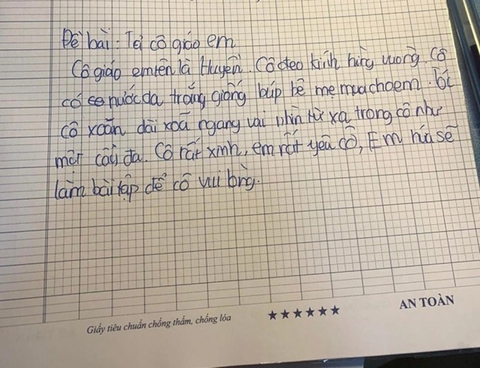 Đề bài: Tả cô giáo em
Cô giáo em tên là Huyền. Cô đeo kính hìng vuông. Cô
có nước da trắng giống búp bê mẹ mua cho em. Tóc
cô xoăn dài xoã ngang vai nhìn từ xa trong cô như
một cây đa. Cô rất xinh, em rất yêu cô, Em hứa sẽ
làm bài tập để cô vui lòng.
Giấy tiêu chuẩn chống thấm, chống lóa ★★★★★★ AN TOÀN